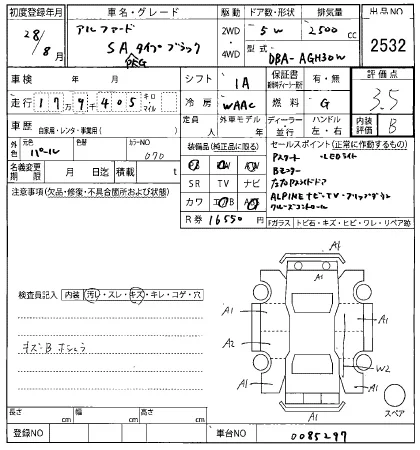 初度登録年月
28/8月
車名・グレード
アルファード
SA タイプブラック
PKG
駆動
2WD
4WD
ドア数・形状
5W
排気量
2500 cc
型式
DBA-AGH30W
出品NO
2532
車検 年 月
シフト
IA
保証書
有・無
評価点
3.5
走行 179405 キロ・マイル
冷房
WAAC
燃料
G
内装評価
B
車歴
自家用・レンタ・事業用( )
外車モデル
年
ディーラー
並行
ハンドル
左・右
外色
元色
パール
色替
カラーNO
070
名義変更期限
月 日迄
積載 t
装備品(純正品に限る)
SR TV ナビ
カワ
R券 16550
セールスポイント(正常に作動するもの)
Pスタート ・LEDライト
Bモニター
左右Pスライドドア
ALPINEナビ・TV・フリップダウン
クルーズコントロール
注意事項(欠品・修復・不具合箇所および状態)
Fガラス トビ石・キズ・ヒビ・ワレ・リペア跡
検査員記入
内装 汚レ・スレ・キズ・キレ・コゲ・穴
A1
A1
A1
A2
W2
A1
A1
A1
スペア
長さ cm
幅 cm
高さ cm
登録NO
車台NO
0085297